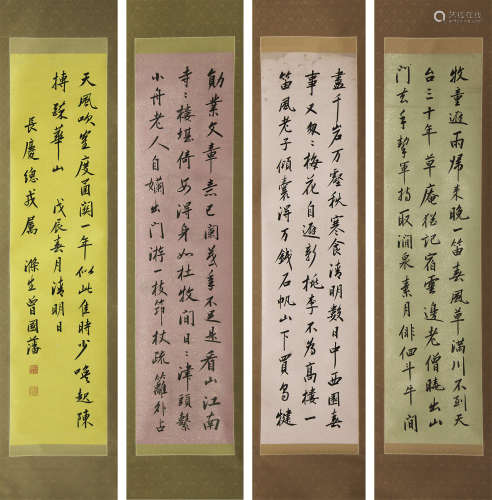 牧童避雨歸來晚一笛春風草滿川不到天
台三十年草庵猶記宿雲邊老僧曉出山
門去手挈軍持取澗泉素月徘徊斗牛間
盡千岩万壑秋寒食清明數日中西園春
事又匆〻梅花自避新桃李不為高樓一
笛風老子傾囊得万錢石帆山下買烏犍
勛業文章意已闌暮年不足是看山江南
寺〻樓堪倚安得身如杜牧閒日〻津頭繫
小舟老人自嬾出門游一枝筇杖疏籬外占
天風吹笠度函關一年似此佳時少喚起陳
摶醉華山 戊辰春月清明日
長慶總戎屬 滌生曾國藩